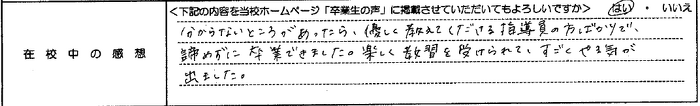 <下記の内容を当校ホームページ「卒業生の声」に掲載させていただいてもよろしいですか> はい ・ いいえ
在校中の感想
分からないところがあったら、優しく教えてくださる指導員の方ばかりで、
諦めずに卒業できました。楽しく教習を受けられて、すごくやる気が
出ました。